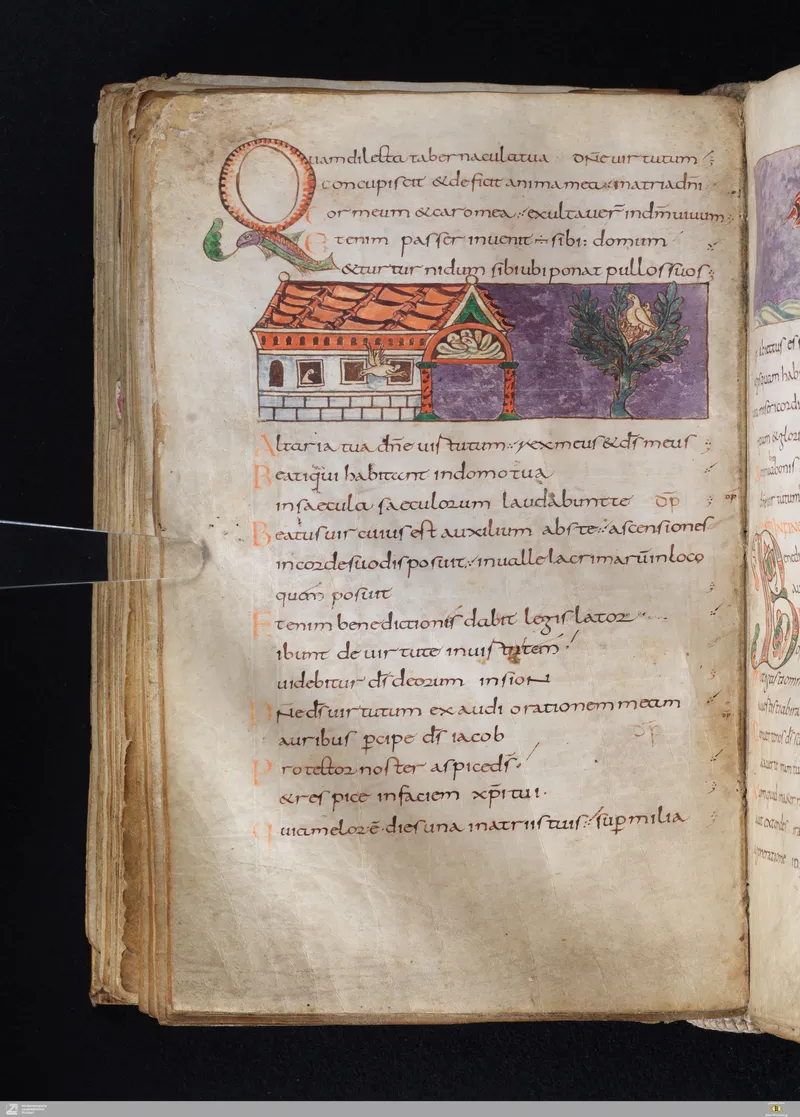 Quam dilecta tabernacula tua dñe uirtutum
concupiscit & deficit anima mea in atria dñi
Cor meum & caro mea exultauer̄ in dm̄ uiuum
Etenim passer inuenit ÷ sibi: domum
& turtur nidum sibi ubi ponat pullos suos
Altaria tua dñe uirtutum rex meus & ds̄ meus
Beati qui habitant in domo tua
in saecula saeculorum laudabunt te dp̄
Beatus uir cuius est auxilium abs te ascensiones
in corde suo disposuit in ualle lacrimarū in loco
quem posuit
Etenim benedictionis dabit legis lator
ibunt de uirtute in uirtutem
uidebitur ds̄ deorum in sion
Dñe ds̄ uirtutum exaudi orationem meam
auribus pcipe ds̄ iacob dp̄
Protector noster aspice ds̄
& respice in faciem xp̄i tui
Quia melor ē dies una in atriis tuis sup milia